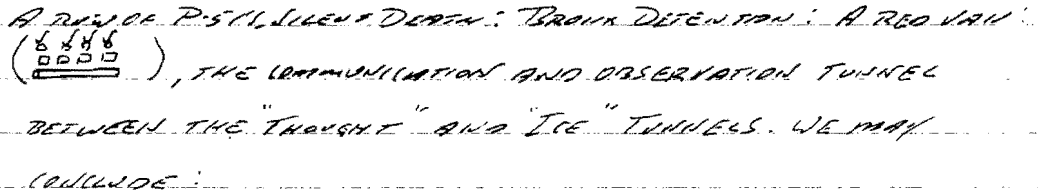 A ROW OF P-5/1, SILENT DEATH: BRONX DETENTION: A RED VAN:
( ), THE COMMUNICATION AND OBSERVATION TUNNEL
BETWEEN THE "THOUGHT" AND "ICE" TUNNELS. WE MAY
CONCLUDE: